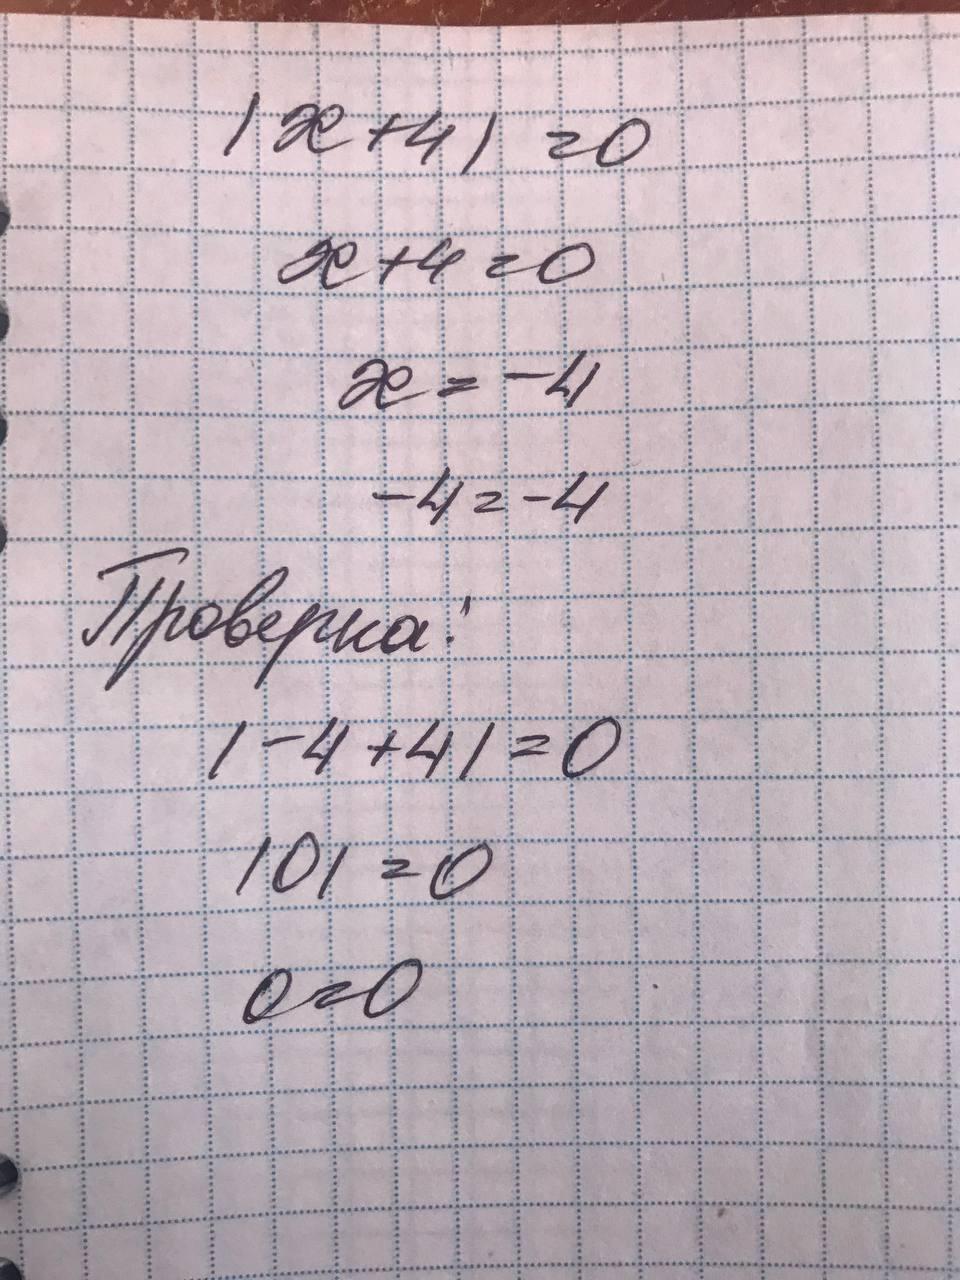 |x+4| =0
x+4=0
x = -4
-4=-4
Проверка:
|-4+4|=0
|0| =0
0=0